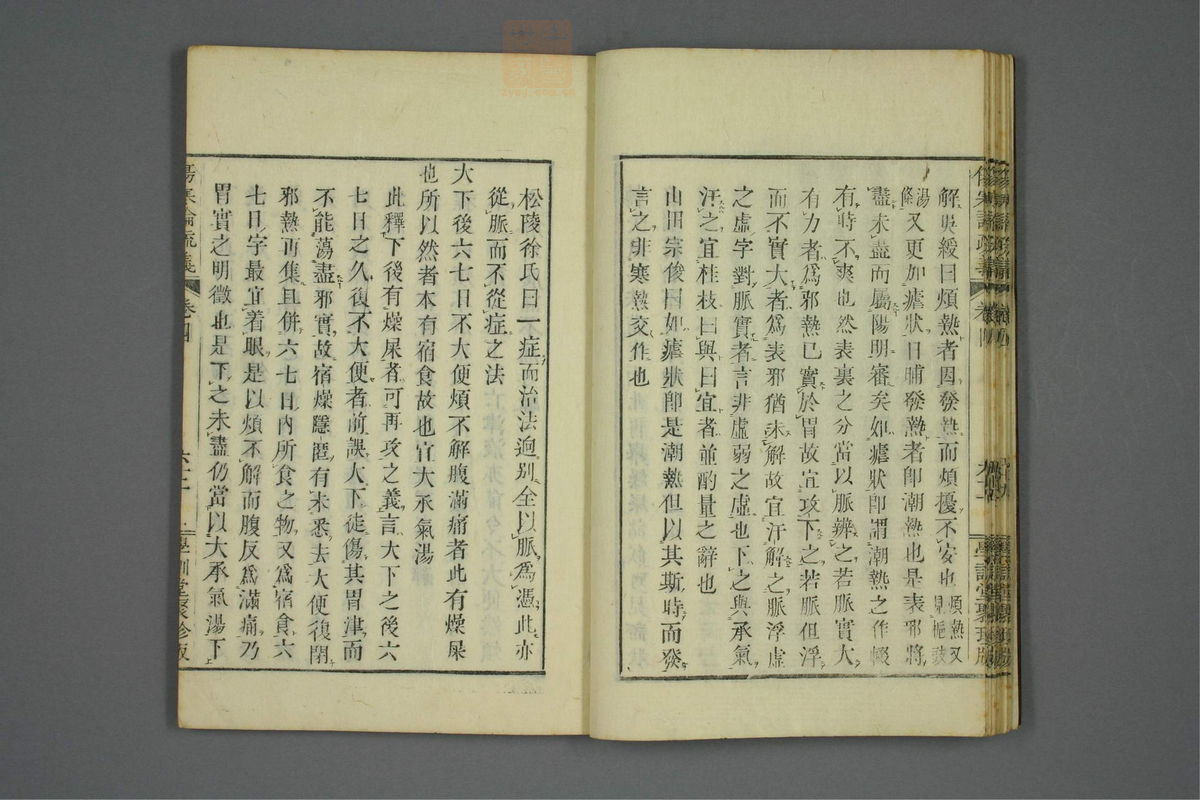 解吳緩曰煩熱者因發熱而煩擾不安也煩熱又見梔豉
湯條又更如瘧狀日晡發熱者卽潮熱也是表邪將
盡未盡而屬陽明審矣如瘧狀卽謂潮熱之作輟
有時不爽也然表裏之分當以脈辨之若脈實大
有力者爲邪熱已實於胃故宜攻下之若脈但浮
而不實大者爲表邪猶未解故宜汗解之脈浮虛
之虛字對脈實者言非虛弱之虛也下之與承氣
汗之宜桂枝曰與曰宜者並酌量之辭也
山田宗俊曰如瘧狀卽是潮熱但以其斯時而發
言之非寒熱交作也
松陵徐氏曰一症而治法迥别全以脈爲憑此亦
從脈而不從症之法
大下後六七日不大便煩不解腹滿痛者此有燥屎
也所以然者本有宿食故也宜大承氣湯
此釋下後有燥屎者可再攻之義言大下之後六
七日之久復不大便者前誤大下徒傷其胃津而
不能蕩盡邪實故宿燥隱匿有未悉去大便復閉
邪熱再集且併六七日內所食之物又爲宿食六
七日字最宜着眼是以煩不解而腹反爲滿痛乃
胃實之明徵也是下之未盡仍當以大承氣湯下
傷寒論疏義
卷四
學訓堂聚珍版